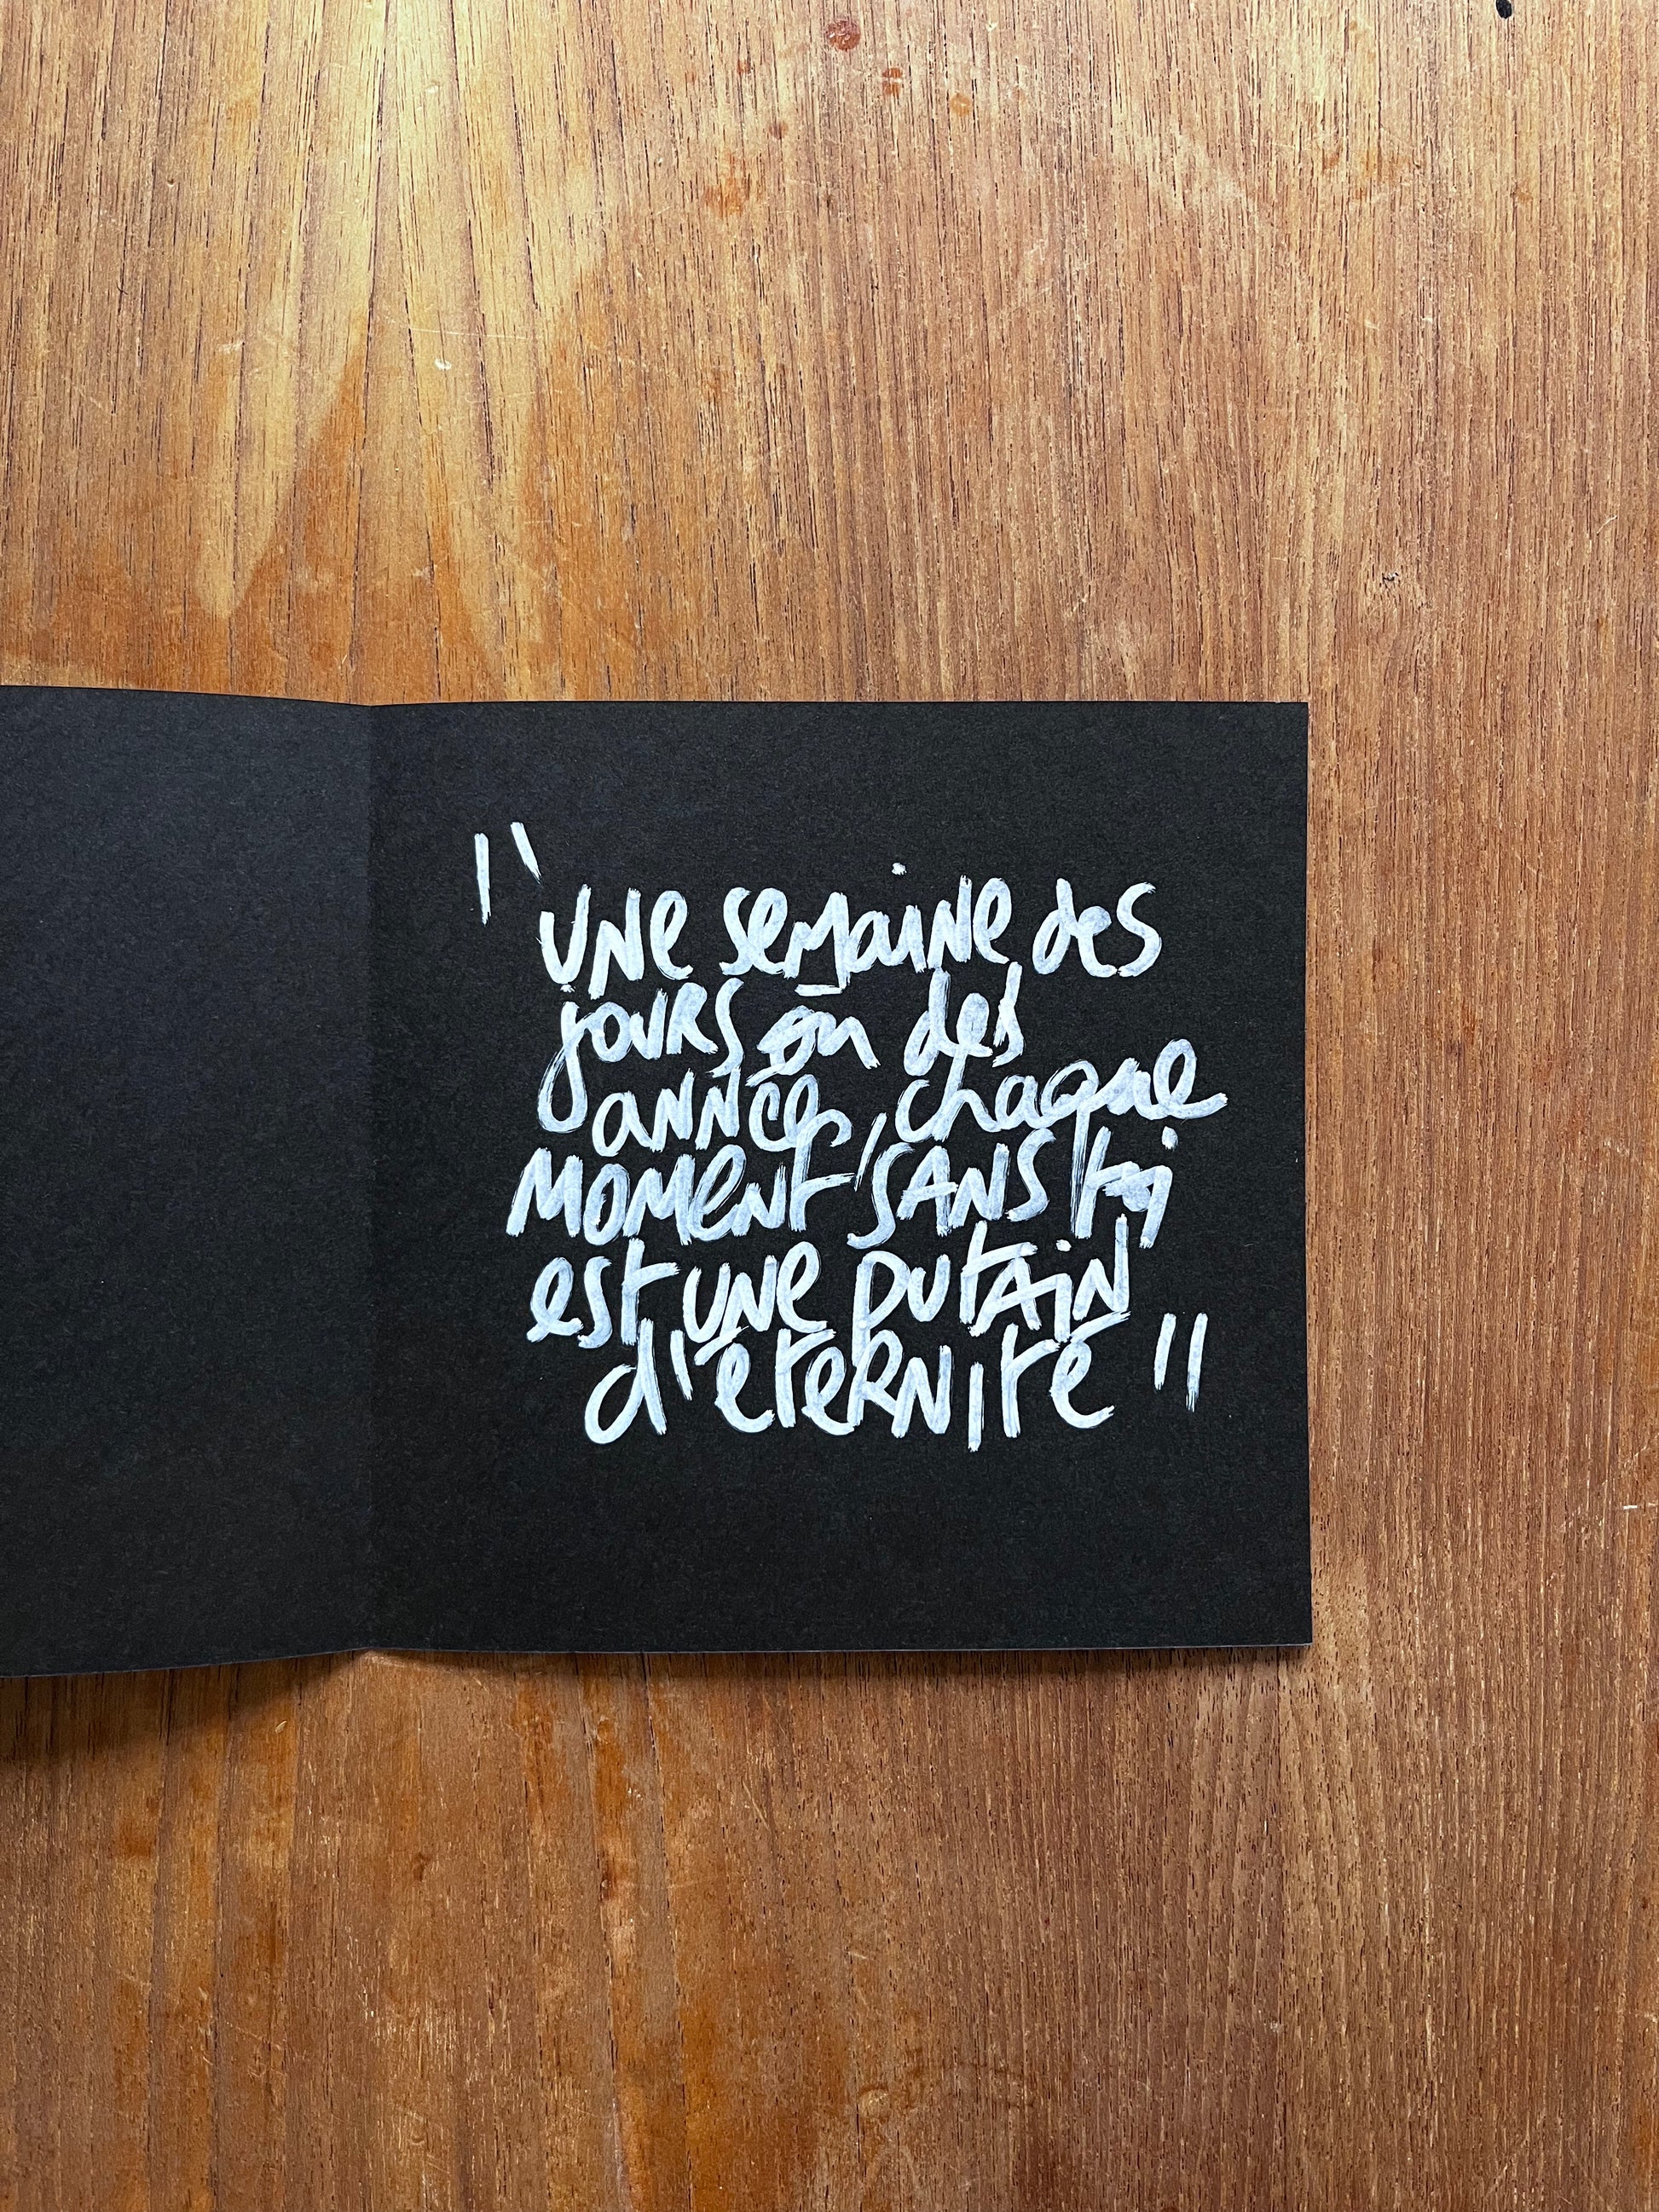 "une semaine des
jours ou des
années, chaque
moment sans toi
est une putain
d'éternité"